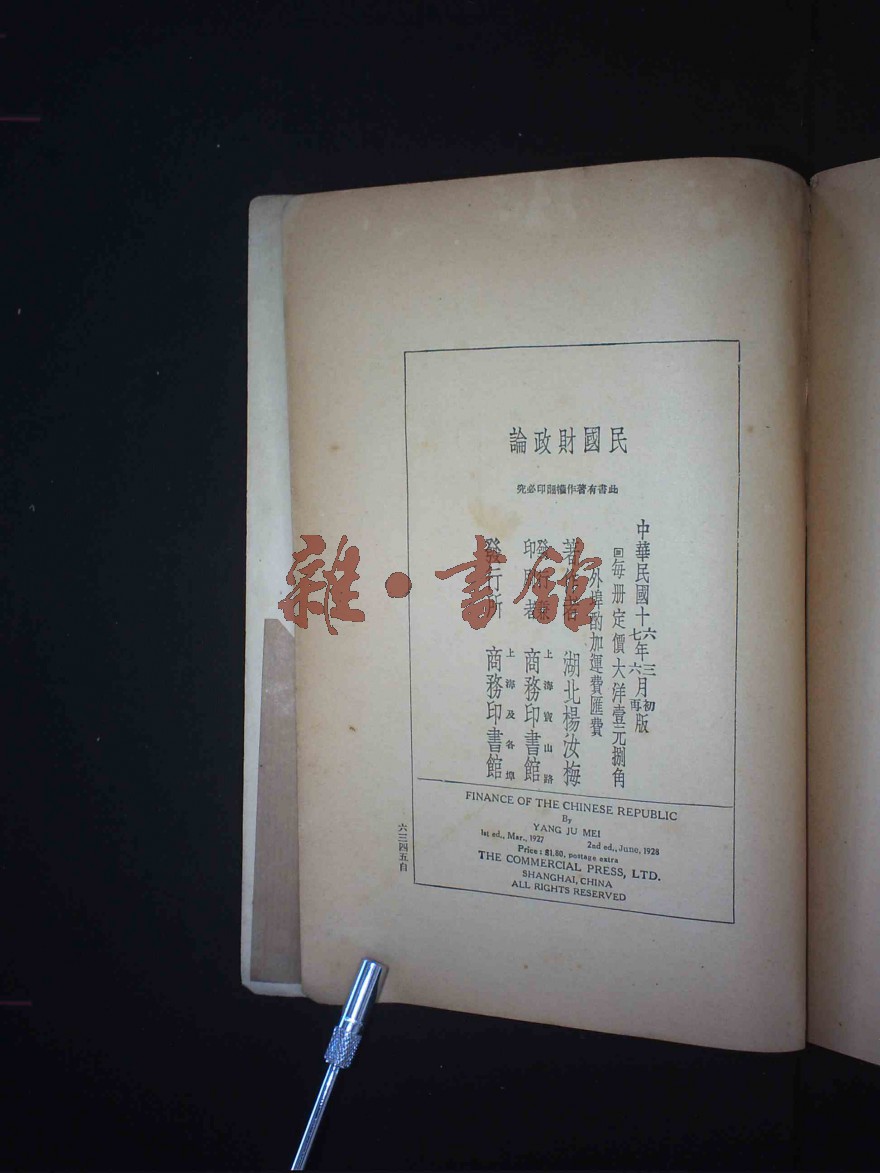 民國財政論
此書有著作權翻印必究
中華民國十六年三月初版
七年六月再版
回每册定價大洋壹元捌角
外埠酌加運費匯費
著作者 湖北楊汝梅
發行兼印刷者 上海寶山路 商務印書館
發行所 上海及各埠 商務印書館
FINANCE OF THE CHINESE REPUBLIC
By
YANG JU MEI
1st ed., Mar., 1927 2nd ed., June, 1928
Price : $1.80, postage extra
THE COMMERCIAL PRESS, LTD.
SHANGHAI, CHINA
ALL RIGHTS RESERVED
六三四五自
雜·書館